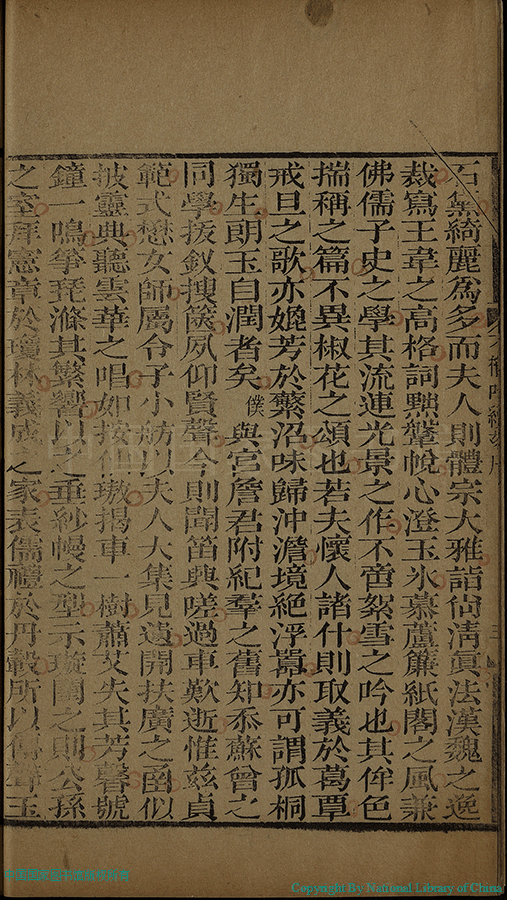 石黛綺麗爲多而夫人則體宗大雅詣尙淸眞法漢魏之逸
裁寫王韋之高格詞黜鞶帨心澄玉氷慕蘆簾紙閣之風兼
佛儒子史之學其流連光景之作不啻絮雪之吟也其侔色
揣稱之篇不異椒花之頌也若夫懷人諸什則取義於葛覃
戒旦之歌亦媲芳於繁沼味歸沖澹境絕浮囂亦可謂孤桐
獨生朗玉自潤者矣 僕與宮詹君附紀羣之舊知忝蘇曾之
同學拔釵搜篋夙仰賢聲今則聞笛興嗟過車歎逝惟兹貞
範式懋女師屬令子小舫以夫人大集見遺開扶廣之函似
披靈典聽雲華之唱如按仙璈揭車一樹蕭艾失其芳馨號
鐘一鳴箏琵滌其繁響以之垂紗幔之型示璇閨之則公孫
之室拜憲章於瓊林義成之家表儒禮於丹轂所以傳聲玉
Copyright By National Library of China